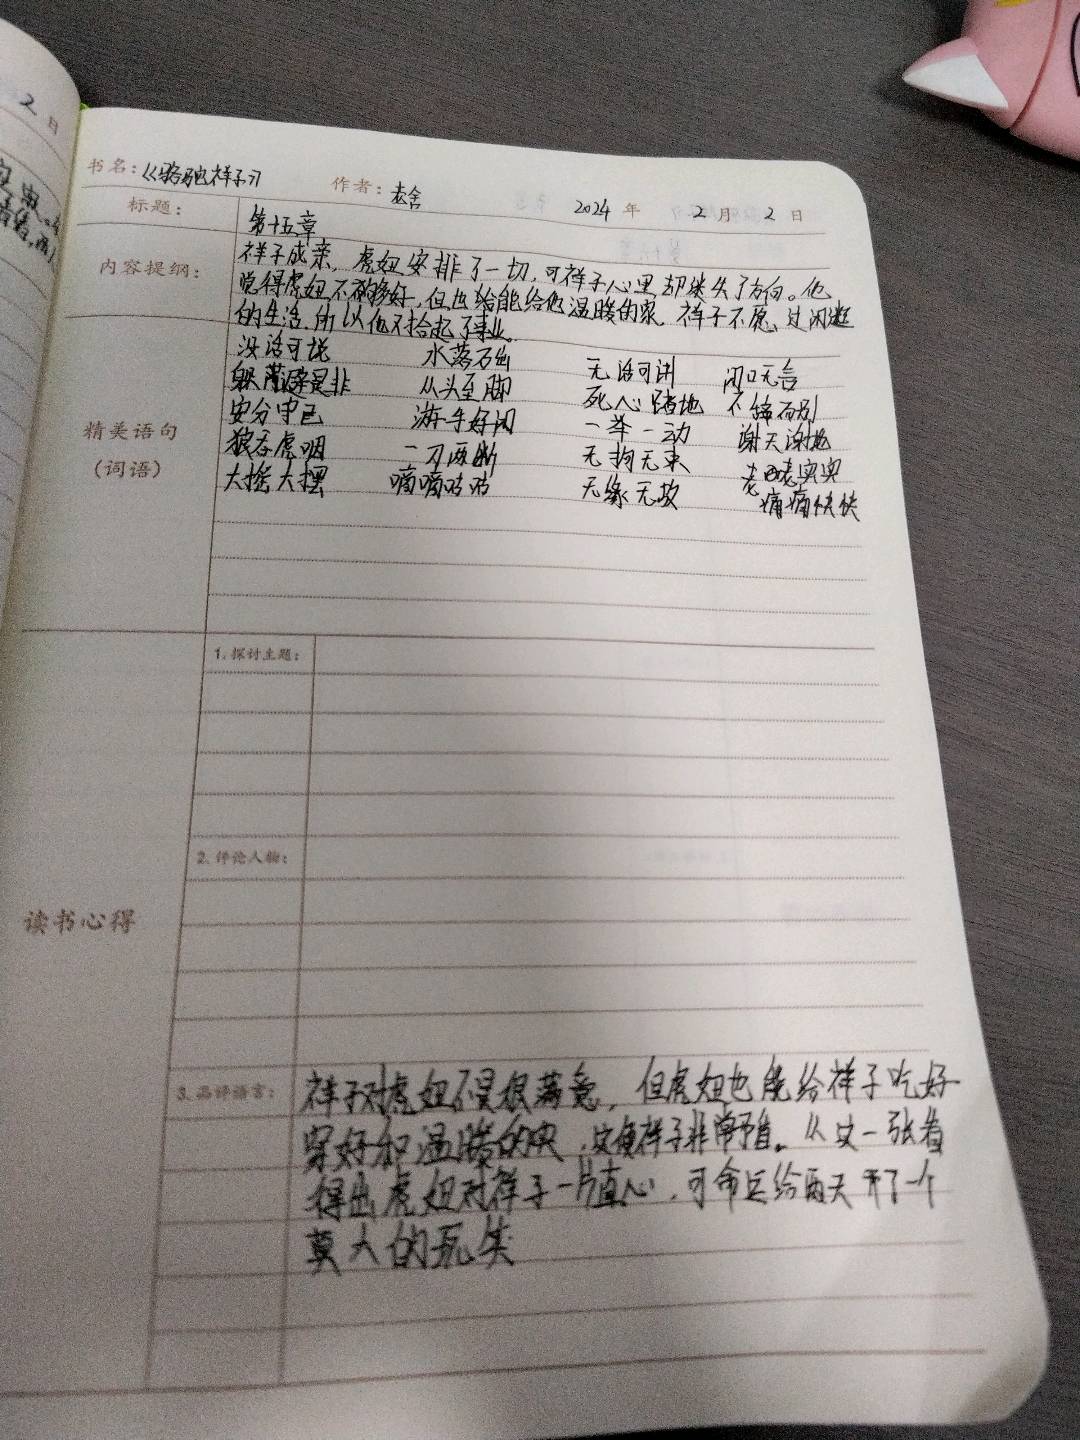 2 日
书名：《骆驼祥子》 作者：老舍 2024 年 2 月 2 日
标题： 第十五章
内容提纲： 祥子成亲，虎妞安排了一切，可祥子心里却迷失了方向。他
觉得虎妞不够好，但也能给他温暖的家 祥子不愿、过闲逛
的生活，所以他不拾起了事业。
精美语句
（词语）
没话可说 水落石出 无话可讲 闭口无言
躲避是非 从头至脚 死心踏地 不辞而别
安分守己 游手好闲 一举一动 谢天谢地
狼吞虎咽 一刀两断 无拘无束 老老实实
大摇大摆 嘀嘀咕咕 无缘无故 痛痛快快
读书心得
1.探讨主题：
2.评论人物：
3.品评语言： 祥子对虎妞不是很满意，但虎妞也能给祥子吃好
穿好和温暖的，这使祥子非常矛盾。从这一张看
得出虎妞对祥子一片真心，可命运给两天开了一个
莫大的玩笑